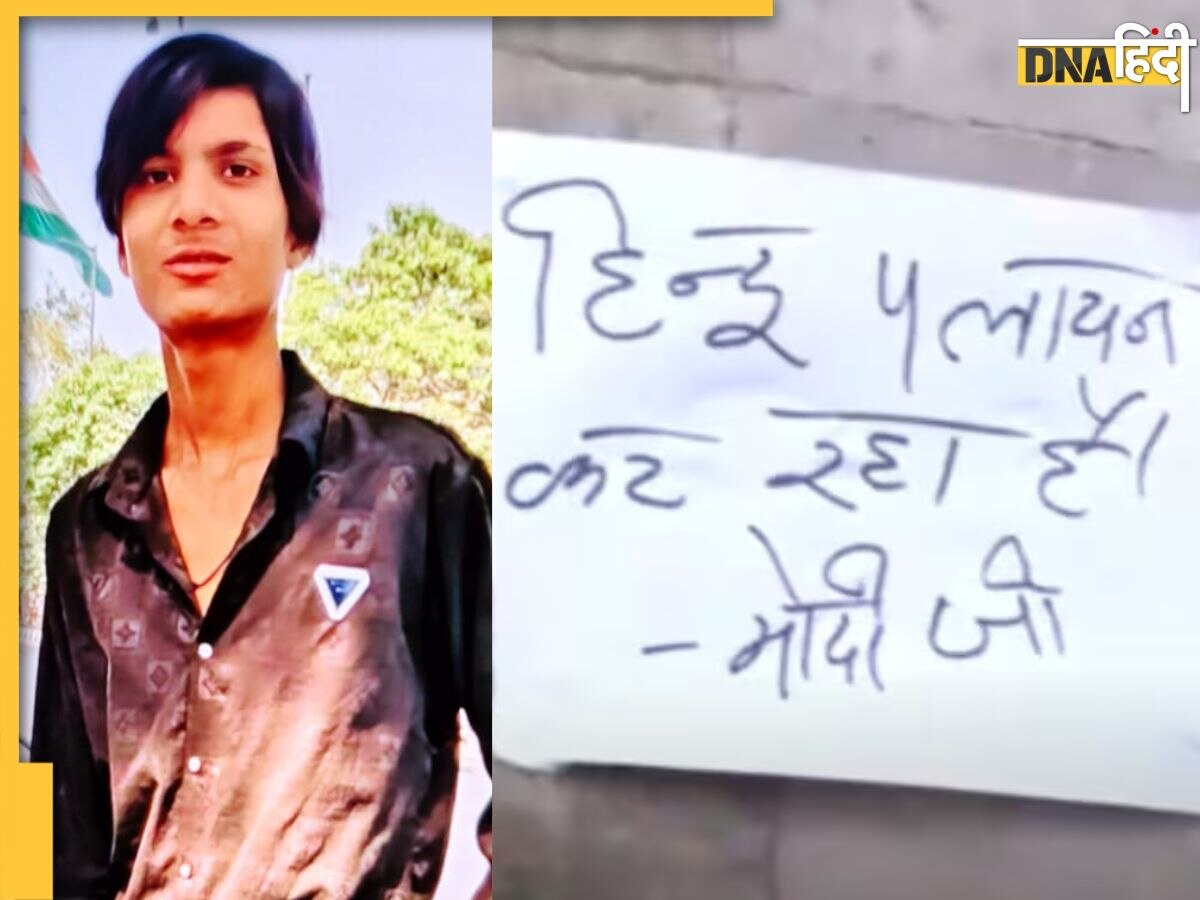 DNA हिंदी
हिन्दू पलायन
कर रहा है।
- मोदी जी